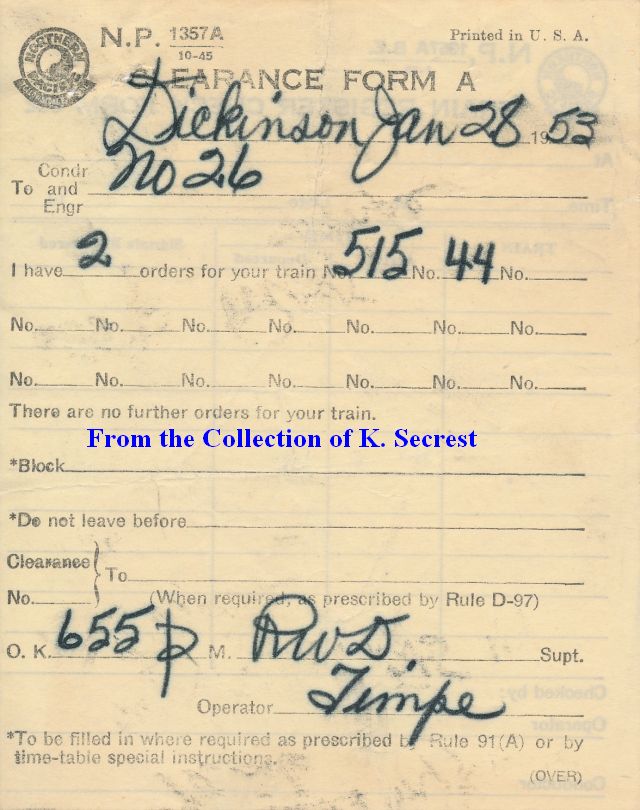 N.P. 1357A
10-45
Printed in U. S. A.
CLEARANCE FORM A
Dickinson Jan 28 1953
To Condr and Engr No 26
I have 2 orders for your train No. 515 No. 44 No.
No. No. No. No. No. No. No.
No. No. No. No. No. No. No.
There are no further orders for your train.
From the Collection of K. Secrest
*Block
*Do not leave before
Clearance No. To
(When required, as prescribed by Rule D-97)
O. K. 655 P M. RWD. Supt.
Operator Timpe
*To be filled in where required as prescribed by Rule 91(A) or by
time-table special instructions.
(OVER)